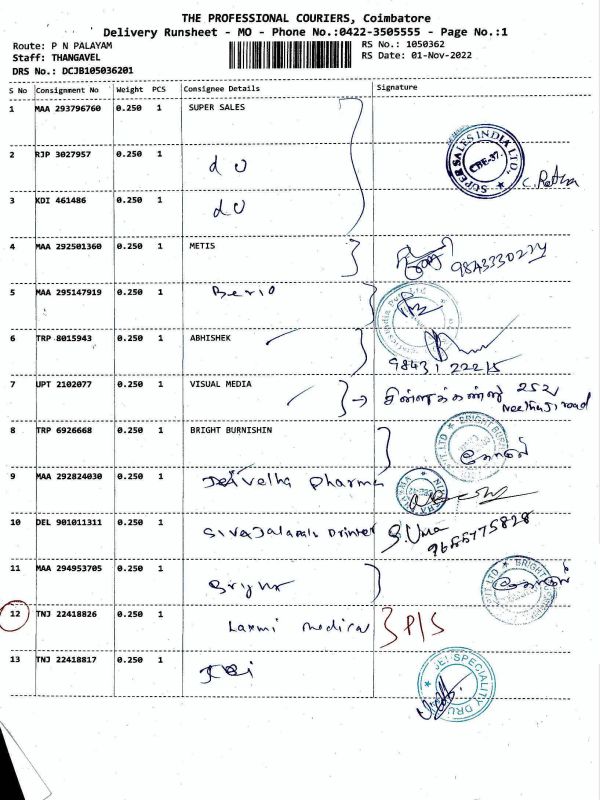 THE PROFESSIONAL COURIERS, Coimbatore
Delivery Runsheet - MO - Phone No.:0422-3505555 - Page No.:1
Route: P N PALAYAM
Staff: THANGAVEL
DRS No.: DCJB105036201
RS No.: 1050362
RS Date: 01-Nov-2022
S No Consignment No Weight PCS Consignee Details Signature
1 MAA 293796760 0.250 1 SUPER SALES
SUPER SALES INDIA LTD. CBE-37.
2 RJP 3027957 0.250 1 do
3 KDI 461486 0.250 1 do
4 MAA 292501360 0.250 1 METIS
9843330224
5 MAA 295147919 0.250 1
6 TRP 8015943 0.250 1 ABHISHEK
98431 22215
7 UPT 2102077 0.250 1 VISUAL MEDIA
252,
8 TRP 6926668 0.250 1 BRIGHT BURNISHIN
9 MAA 292824030 0.250 1 Pharma
10 DEL 901011311 0.250 1 Printer S. Uma
9655775828
11 MAA 294953705 0.250 1
12 TNJ 22418826 0.250 1 Laxmi medical P/S
13 TNJ 22418817 0.250 1
JEI SPECIALITY